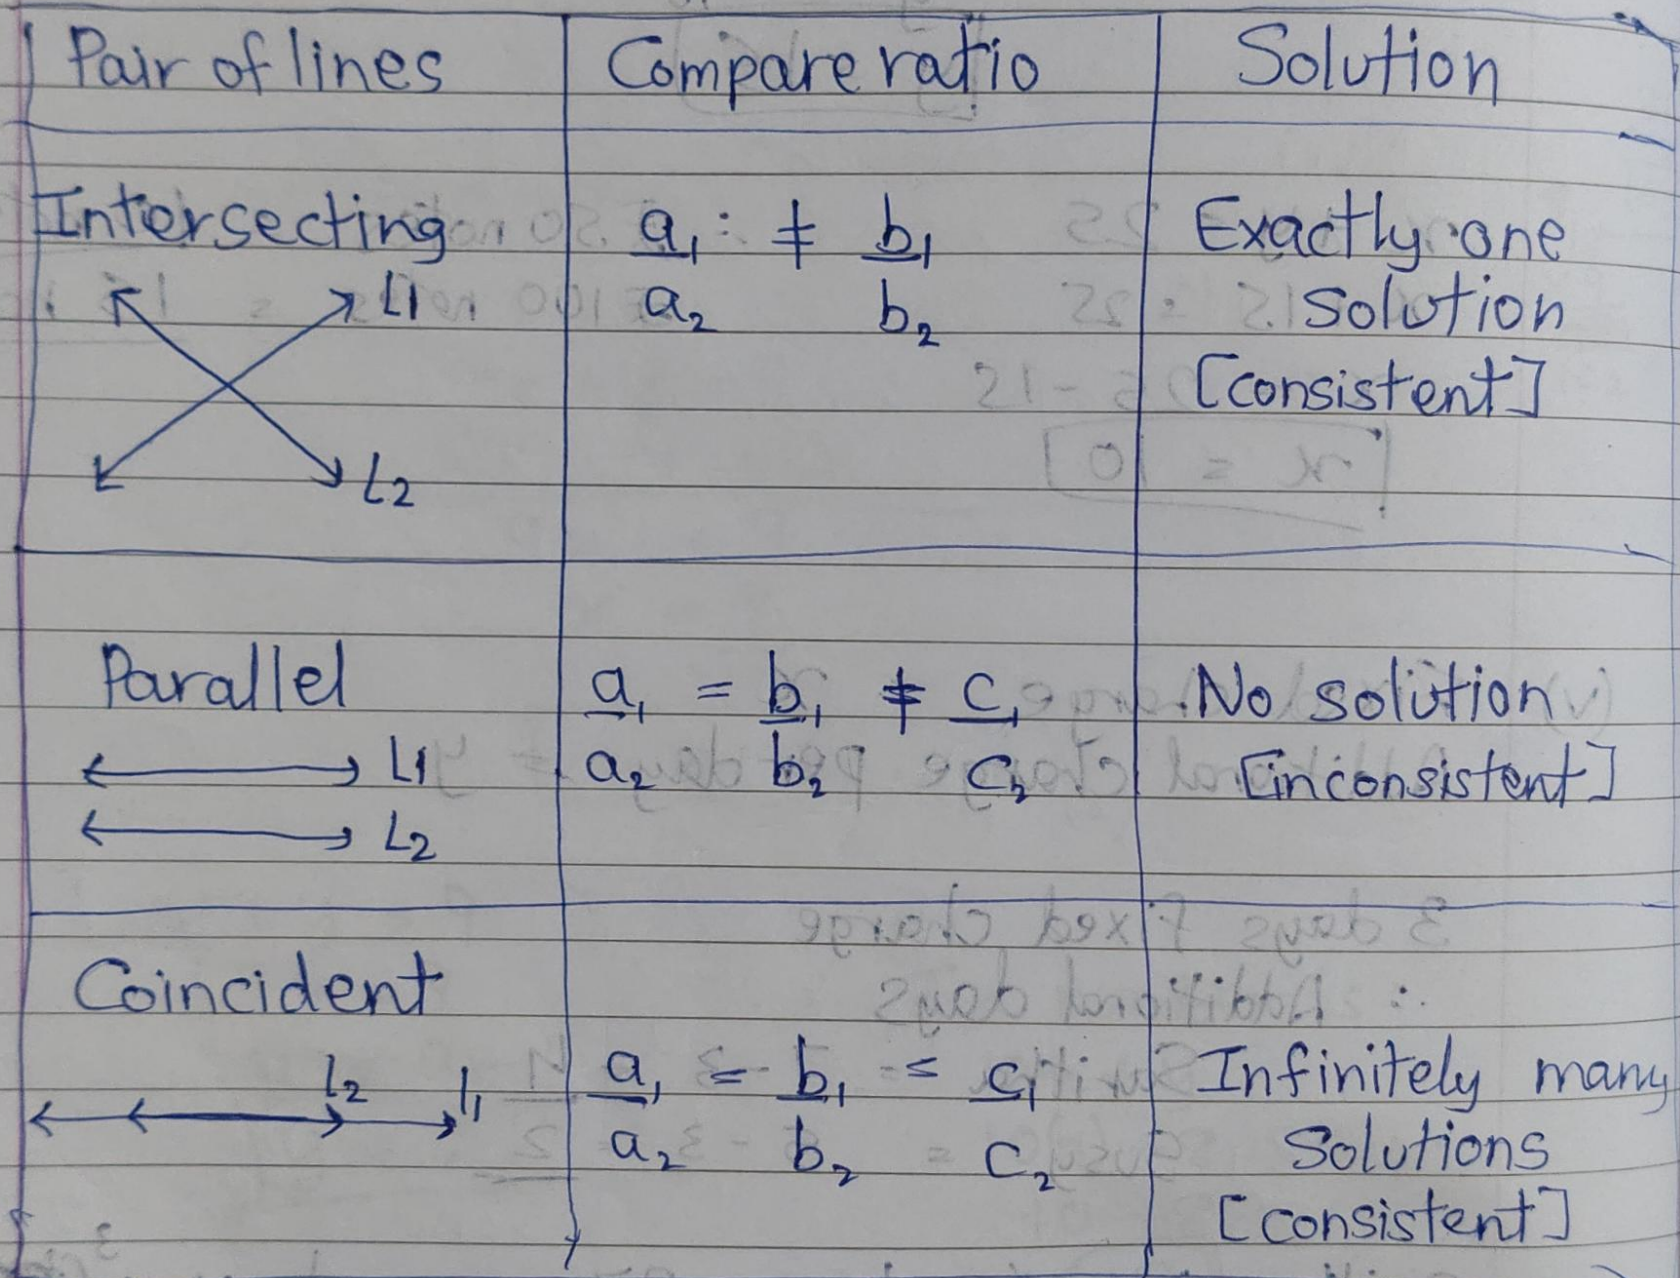 Pair of lines
Compare ratio
Solution
Intersecting
L1
L2
a₁ ≠ b₁
a₂ b₂
Exactly one
Solution
[consistent]
Parallel
L1
L2
a₁ = b₁ ≠ c₁
a₂ b₂ c₂
No solution
[inconsistent]
Coincident
L2 L1
a₁ = b₁ = c₁
a₂ b₂ c₂
Infinitely many
Solutions
[consistent]